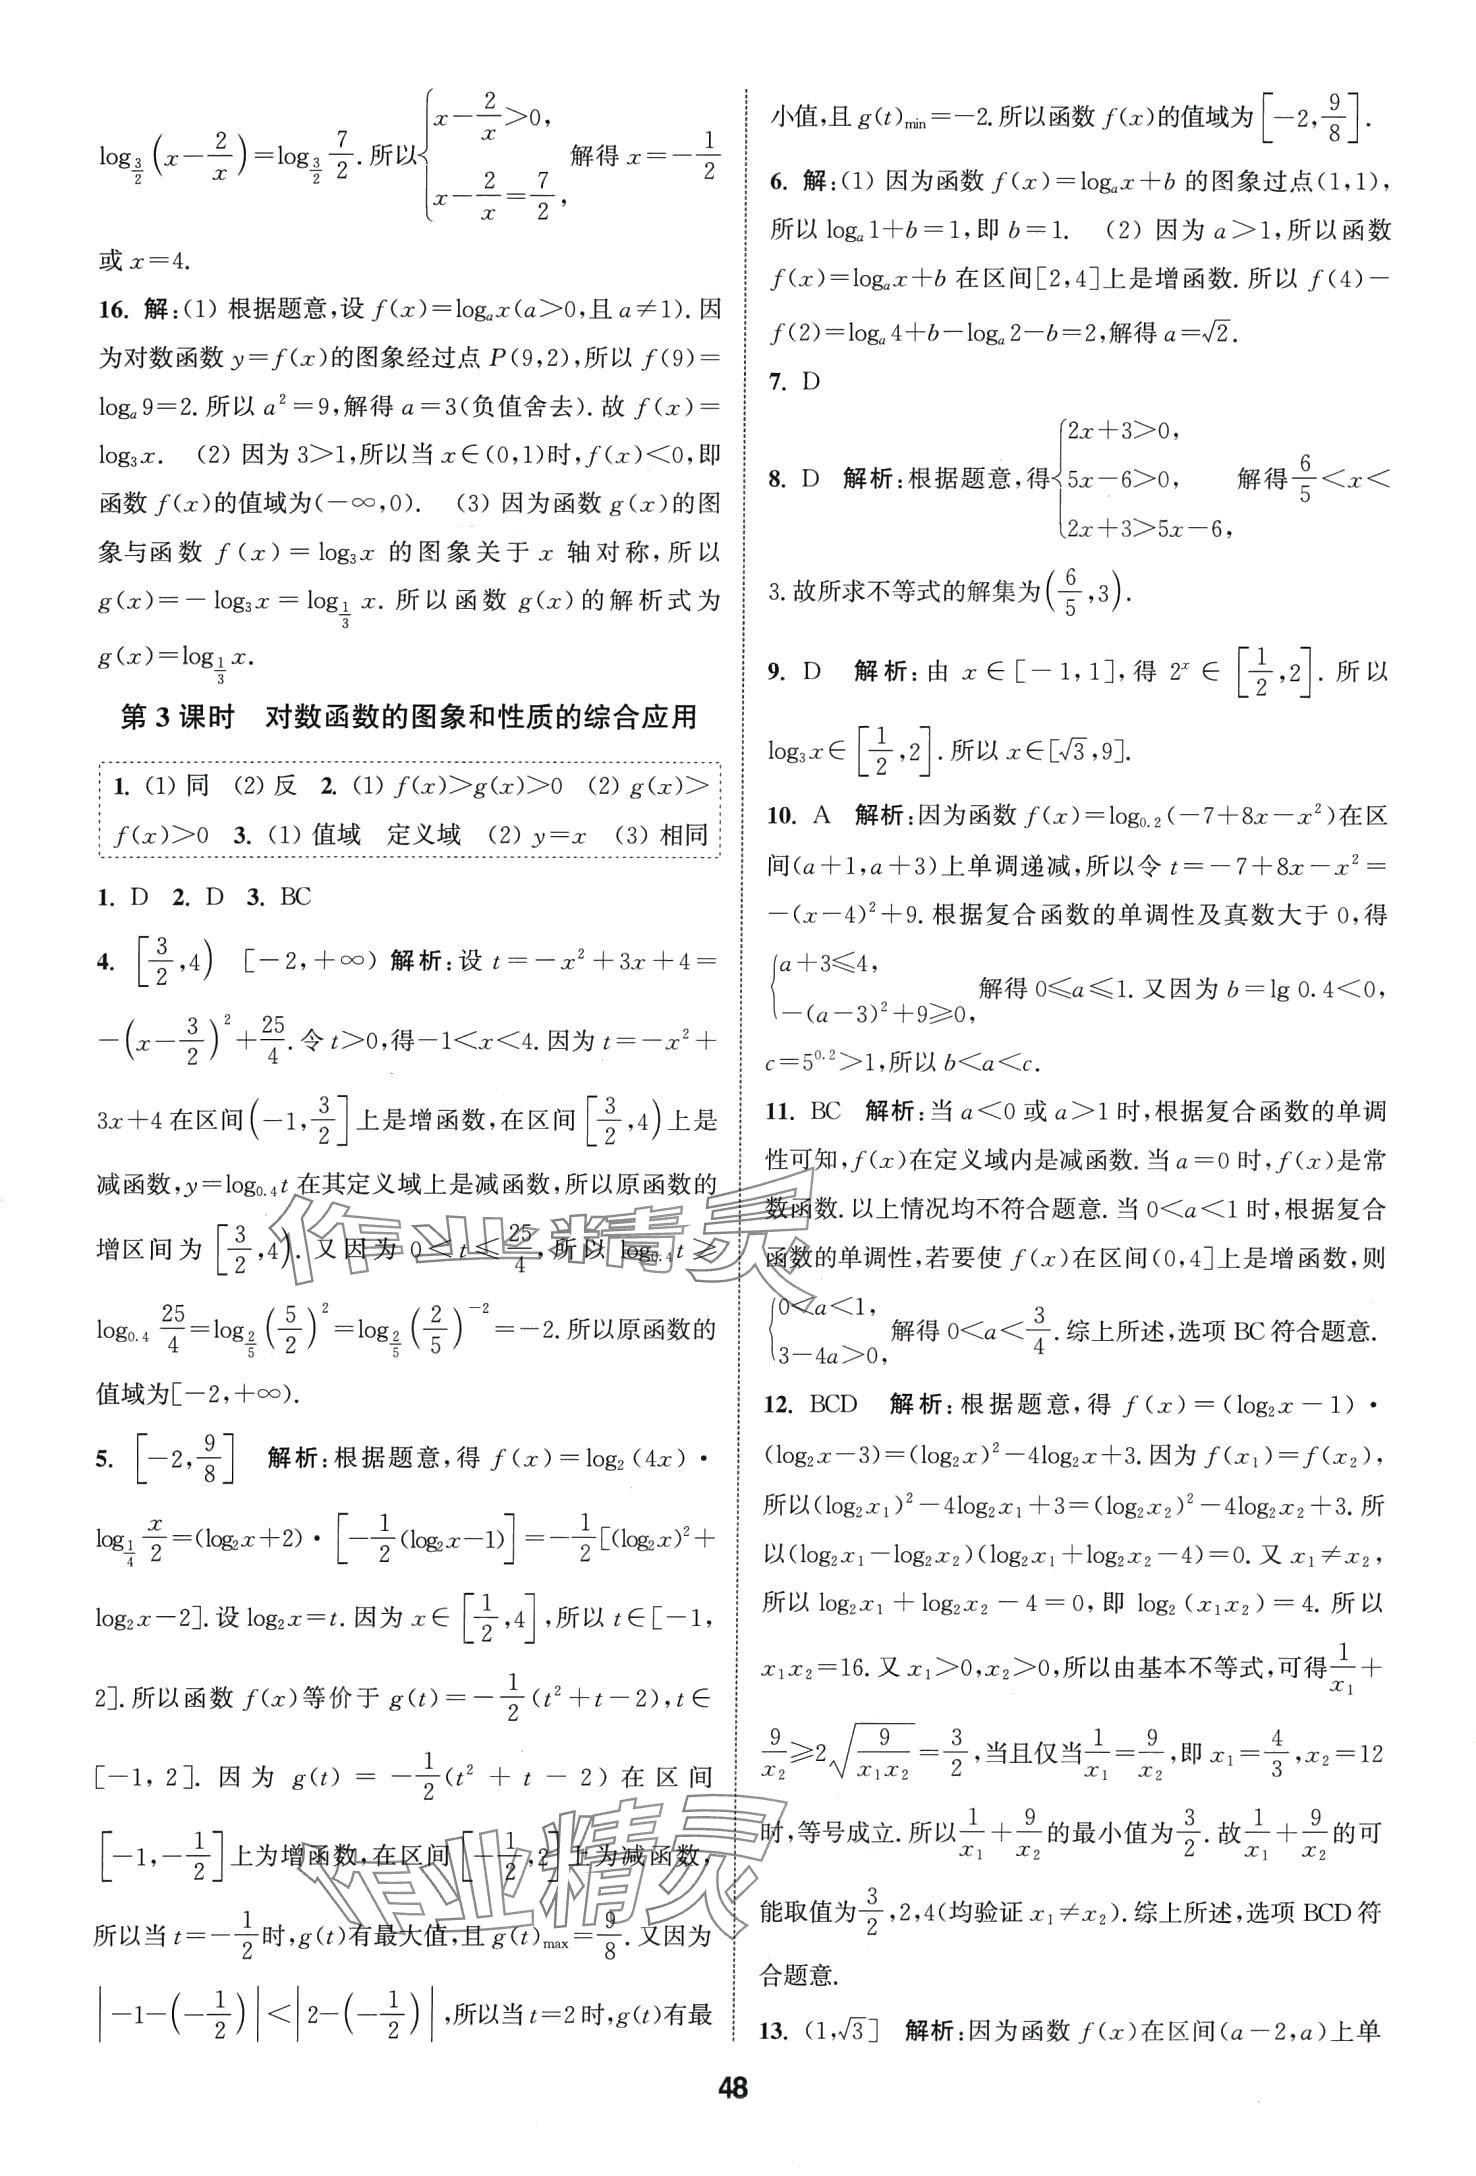 log_{3/2}(x-2/x)=log_{3/2} 7/2.所以{x-2/x>0, x-2/x=7/2, 解得 x=-1/2
或 x=4.
16. 解:(1) 根据题意,设 f(x)=logₐx(a>0,且 a≠1).因
为对数函数 y=f(x)的图象经过点 P(9,2),所以 f(9)=
logₐ9=2.所以 a²=9,解得 a=3(负值舍去).故 f(x)=
log₃x. (2) 因为 3>1,所以当 x∈(0,1)时,f(x)<0,即
函数 f(x)的值域为(-∞,0). (3) 因为函数 g(x)的图
象与函数 f(x)=log₃x 的图象关于 x 轴对称,所以
g(x)=-log₃x=log_{1/3} x.所以函数 g(x)的解析式为
g(x)=log_{1/3} x.
第 3 课时 对数函数的图象和性质的综合应用
1. (1) 同 (2) 反 2. (1) f(x)>g(x)>0 (2) g(x)>
f(x)>0 3. (1) 值域 定义域 (2) y=x (3) 相同
1. D 2. D 3. BC
4. [3/2,4) [-2,+∞) 解析:设 t=-x²+3x+4=
-(x-3/2)²+25/4.令 t>0,得-1<x<4.因为 t=-x²+
3x+4 在区间(-1,3/2]上是增函数,在区间[3/2,4)上是
减函数,y=log₀.₄t 在其定义域上是减函数,所以原函数的
增区间为[3/2,4).又因为 0<t≤25/4,所以 log₀.₄t≥
log₀.₄ 25/4=log_{2/5}(5/2)²=log_{2/5}(2/5)⁻²=-2.所以原函数的
值域为[-2,+∞).
5. [-2,9/8] 解析:根据题意,得 f(x)=log₂(4x)·
log_{1/4} x/2=(log₂x+2)·[-1/2(log₂x-1)]=-1/2[(log₂x)²+
log₂x-2].设 log₂x=t.因为 x∈[1/2,4],所以 t∈[-1,
2].所以函数 f(x)等价于 g(t)=-1/2(t²+t-2),t∈
[-1,2].因为 g(t)=-1/2(t²+t-2)在区间
[-1,-1/2]上为增函数,在区间[-1/2,2]上为减函数,
所以当 t=-1/2时,g(t)有最大值,且 g(t)max=9/8.又因为
|-1-(-1/2)|<|2-(-1/2)|,所以当 t=2 时,g(t)有最
小值,且 g(t)min=-2.所以函数 f(x)的值域为[-2,9/8].
6. 解:(1) 因为函数 f(x)=logₐx+b 的图象过点(1,1),
所以 logₐ1+b=1,即 b=1. (2) 因为 a>1,所以函数
f(x)=logₐx+b 在区间[2,4]上是增函数.所以 f(4)-
f(2)=logₐ4+b-logₐ2-b=2,解得 a=√2.
7. D
8. D 解析:根据题意,得{2x+3>0, 5x-6>0, 2x+3>5x-6, 解得6/5<x<
3.故所求不等式的解集为(6/5,3).
9. D 解析:由 x∈[-1,1],得 2ˣ∈[1/2,2].所以
log₃x∈[1/2,2].所以 x∈[√3,9].
10. A 解析:因为函数 f(x)=log₀.₂(-7+8x-x²)在区
间(a+1,a+3)上单调递减,所以令 t=-7+8x-x²=
-(x-4)²+9.根据复合函数的单调性及真数大于 0,得
{a+3≤4, -(a-3)²+9≥0, 解得 0≤a≤1.又因为 b=lg 0.4<0,
c=5⁰·²>1,所以 b<a<c.
11. BC 解析:当 a<0 或 a>1 时,根据复合函数的单调
性可知,f(x)在定义域内是减函数.当 a=0 时,f(x)是常
数函数.以上情况均不符合题意.当 0<a<1 时,根据复合
函数的单调性,若要使 f(x)在区间(0,4]上是增函数,则
{0<a<1, 3-4a>0, 解得 0<a<3/4.综上所述,选项 BC 符合题意.
12. BCD 解析:根据题意,得 f(x)=(log₂x-1)·
(log₂x-3)=(log₂x)²-4log₂x+3.因为 f(x₁)=f(x₂),
所以(log₂x₁)²-4log₂x₁+3=(log₂x₂)²-4log₂x₂+3.所
以(log₂x₁-log₂x₂)(log₂x₁+log₂x₂-4)=0.又 x₁≠x₂,
所以 log₂x₁+log₂x₂-4=0,即 log₂(x₁x₂)=4.所以
x₁x₂=16.又 x₁>0,x₂>0,所以由基本不等式,可得1/x₁+
9/x₂≥2√(9/(x₁x₂))=3/2,当且仅当1/x₁=9/x₂,即 x₁=4/3,x₂=12
时,等号成立.所以1/x₁+9/x₂的最小值为3/2.故1/x₁+9/x₂的可
能取值为3/2,2,4(均验证 x₁≠x₂).综上所述,选项 BCD 符
合题意.
13. (1,√3] 解析:因为函数 f(x)在区间(a-2,a)上单
48
作业精灵
作业精灵